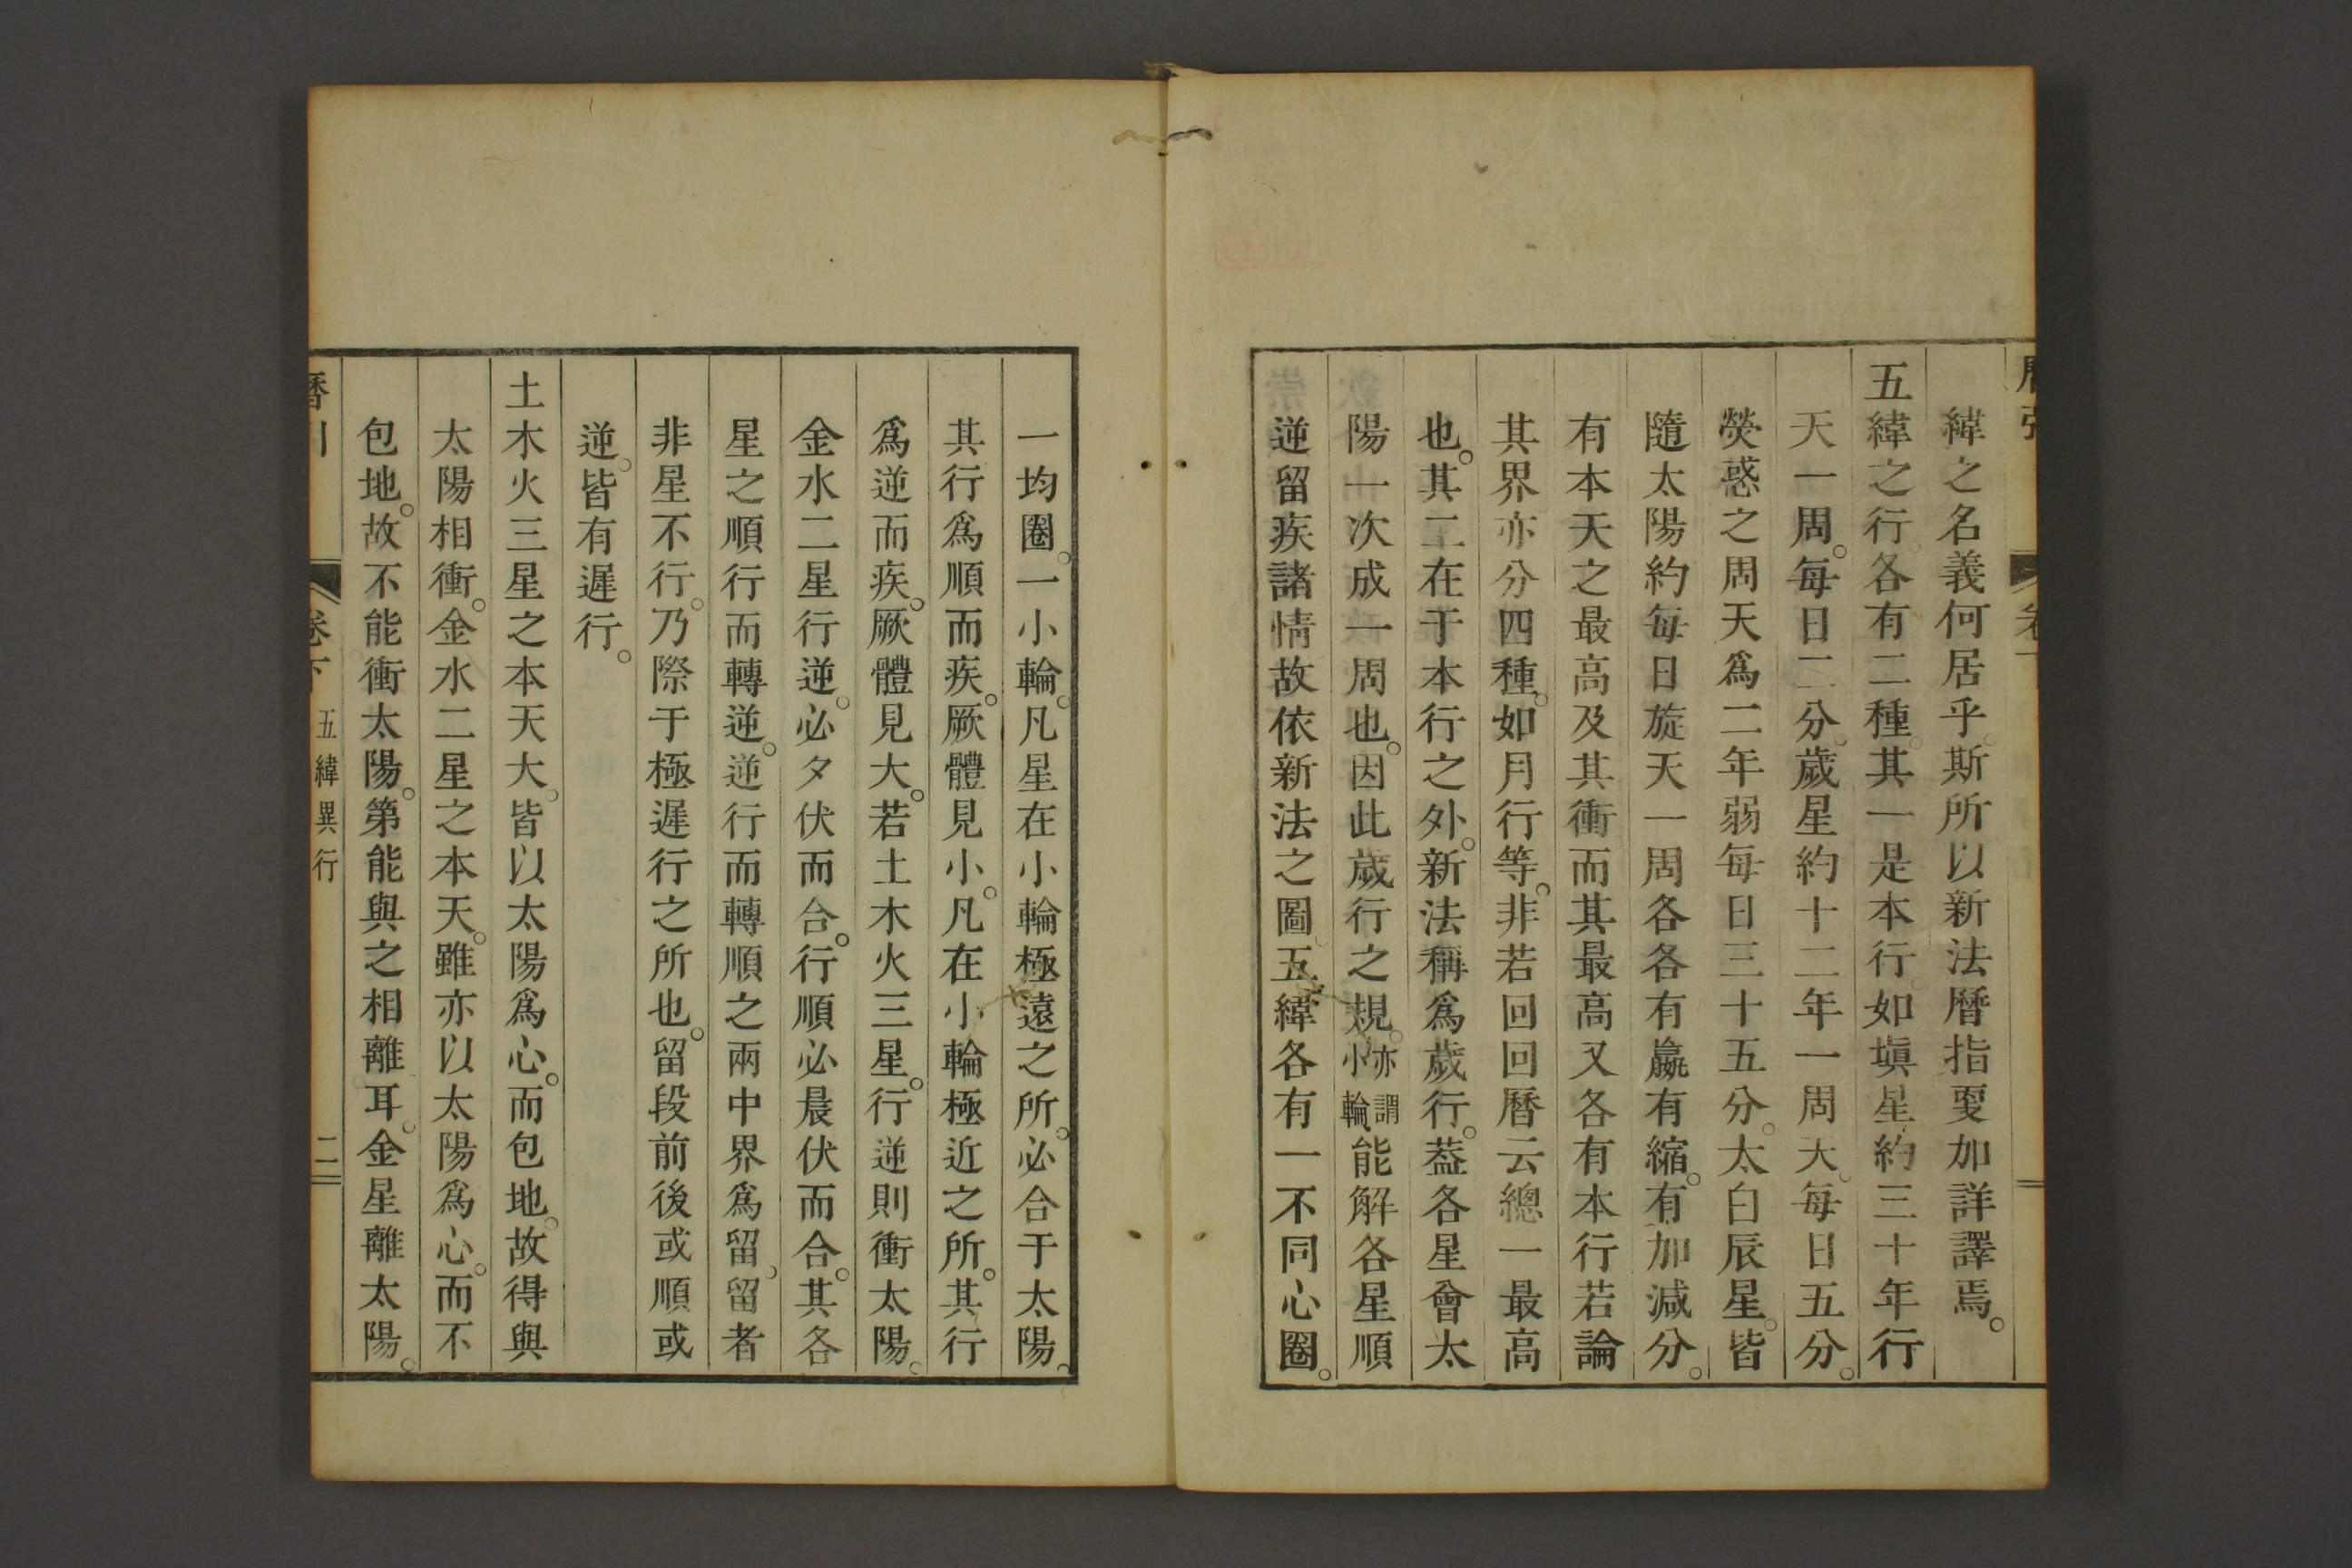 緯之名義何居乎斯所以新法曆指更加詳譯焉。
五緯之行。各有二種。其一是本行。如塡星約三十年行
天一周。每日二分。歲星約十二年一周天。每日五分。
熒惑之周天爲二年弱每日三十五分。太白辰星。皆
隨太陽約每日旋天一周各各有嬴有縮。有加減分。
有本天之最高及其衝而其最高又各有本行若論
其界亦分四種。如月行等。非若回回曆云總一最高
也。其二在于本行之外。新法稱爲歲行。葢各星會太
陽一次成一周也。因此歲行之規。亦謂小輪、能解各星順
逆留疾諸情故依新法之圖。五緯各有一不同心圈。
一均圈。一小輪。凡星在小輪極遠之所。必合于太陽。
其行爲順而疾。厥體見小。凡在小輪極近之所。其行
爲逆而疾。厥體見大。若土木火三星。行逆則衝太陽。
金水二星行逆。必夕伏而合。行順必晨伏而合。其各
星之順行而轉逆。逆行而轉順之兩中界爲留。留者
非星不行。乃際于極遲行之所也。留段前後或順或
逆。皆有遲行。
土木火三星之本天大。皆以太陽爲心。而包地。故得與
太陽相衝。金水二星之本天。雖亦以太陽爲心。而不
包地。故不能衝太陽。第能與之相離耳。金星離太陽。
卷下 五緯異行 二